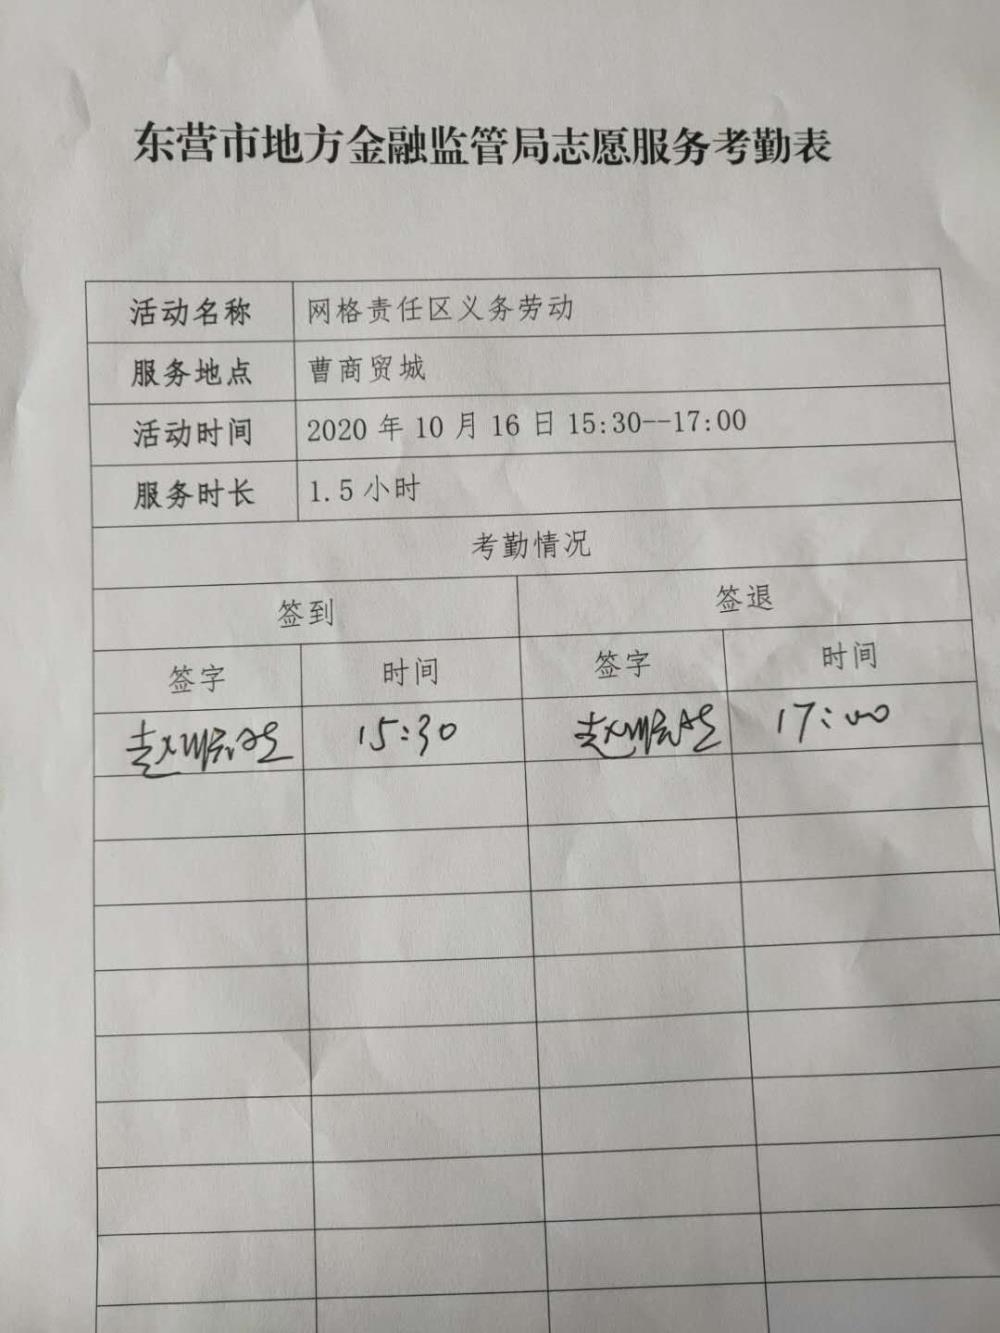 东营市地方金融监管局志愿服务考勤表
活动名称 网格责任区义务劳动
服务地点 曹商贸城
活动时间 2020 年 10 月 16 日 15:30--17:00
服务时长 1.5 小时
考勤情况
签到 签退
签字 时间 签字 时间
赵 15:30 赵 17:00